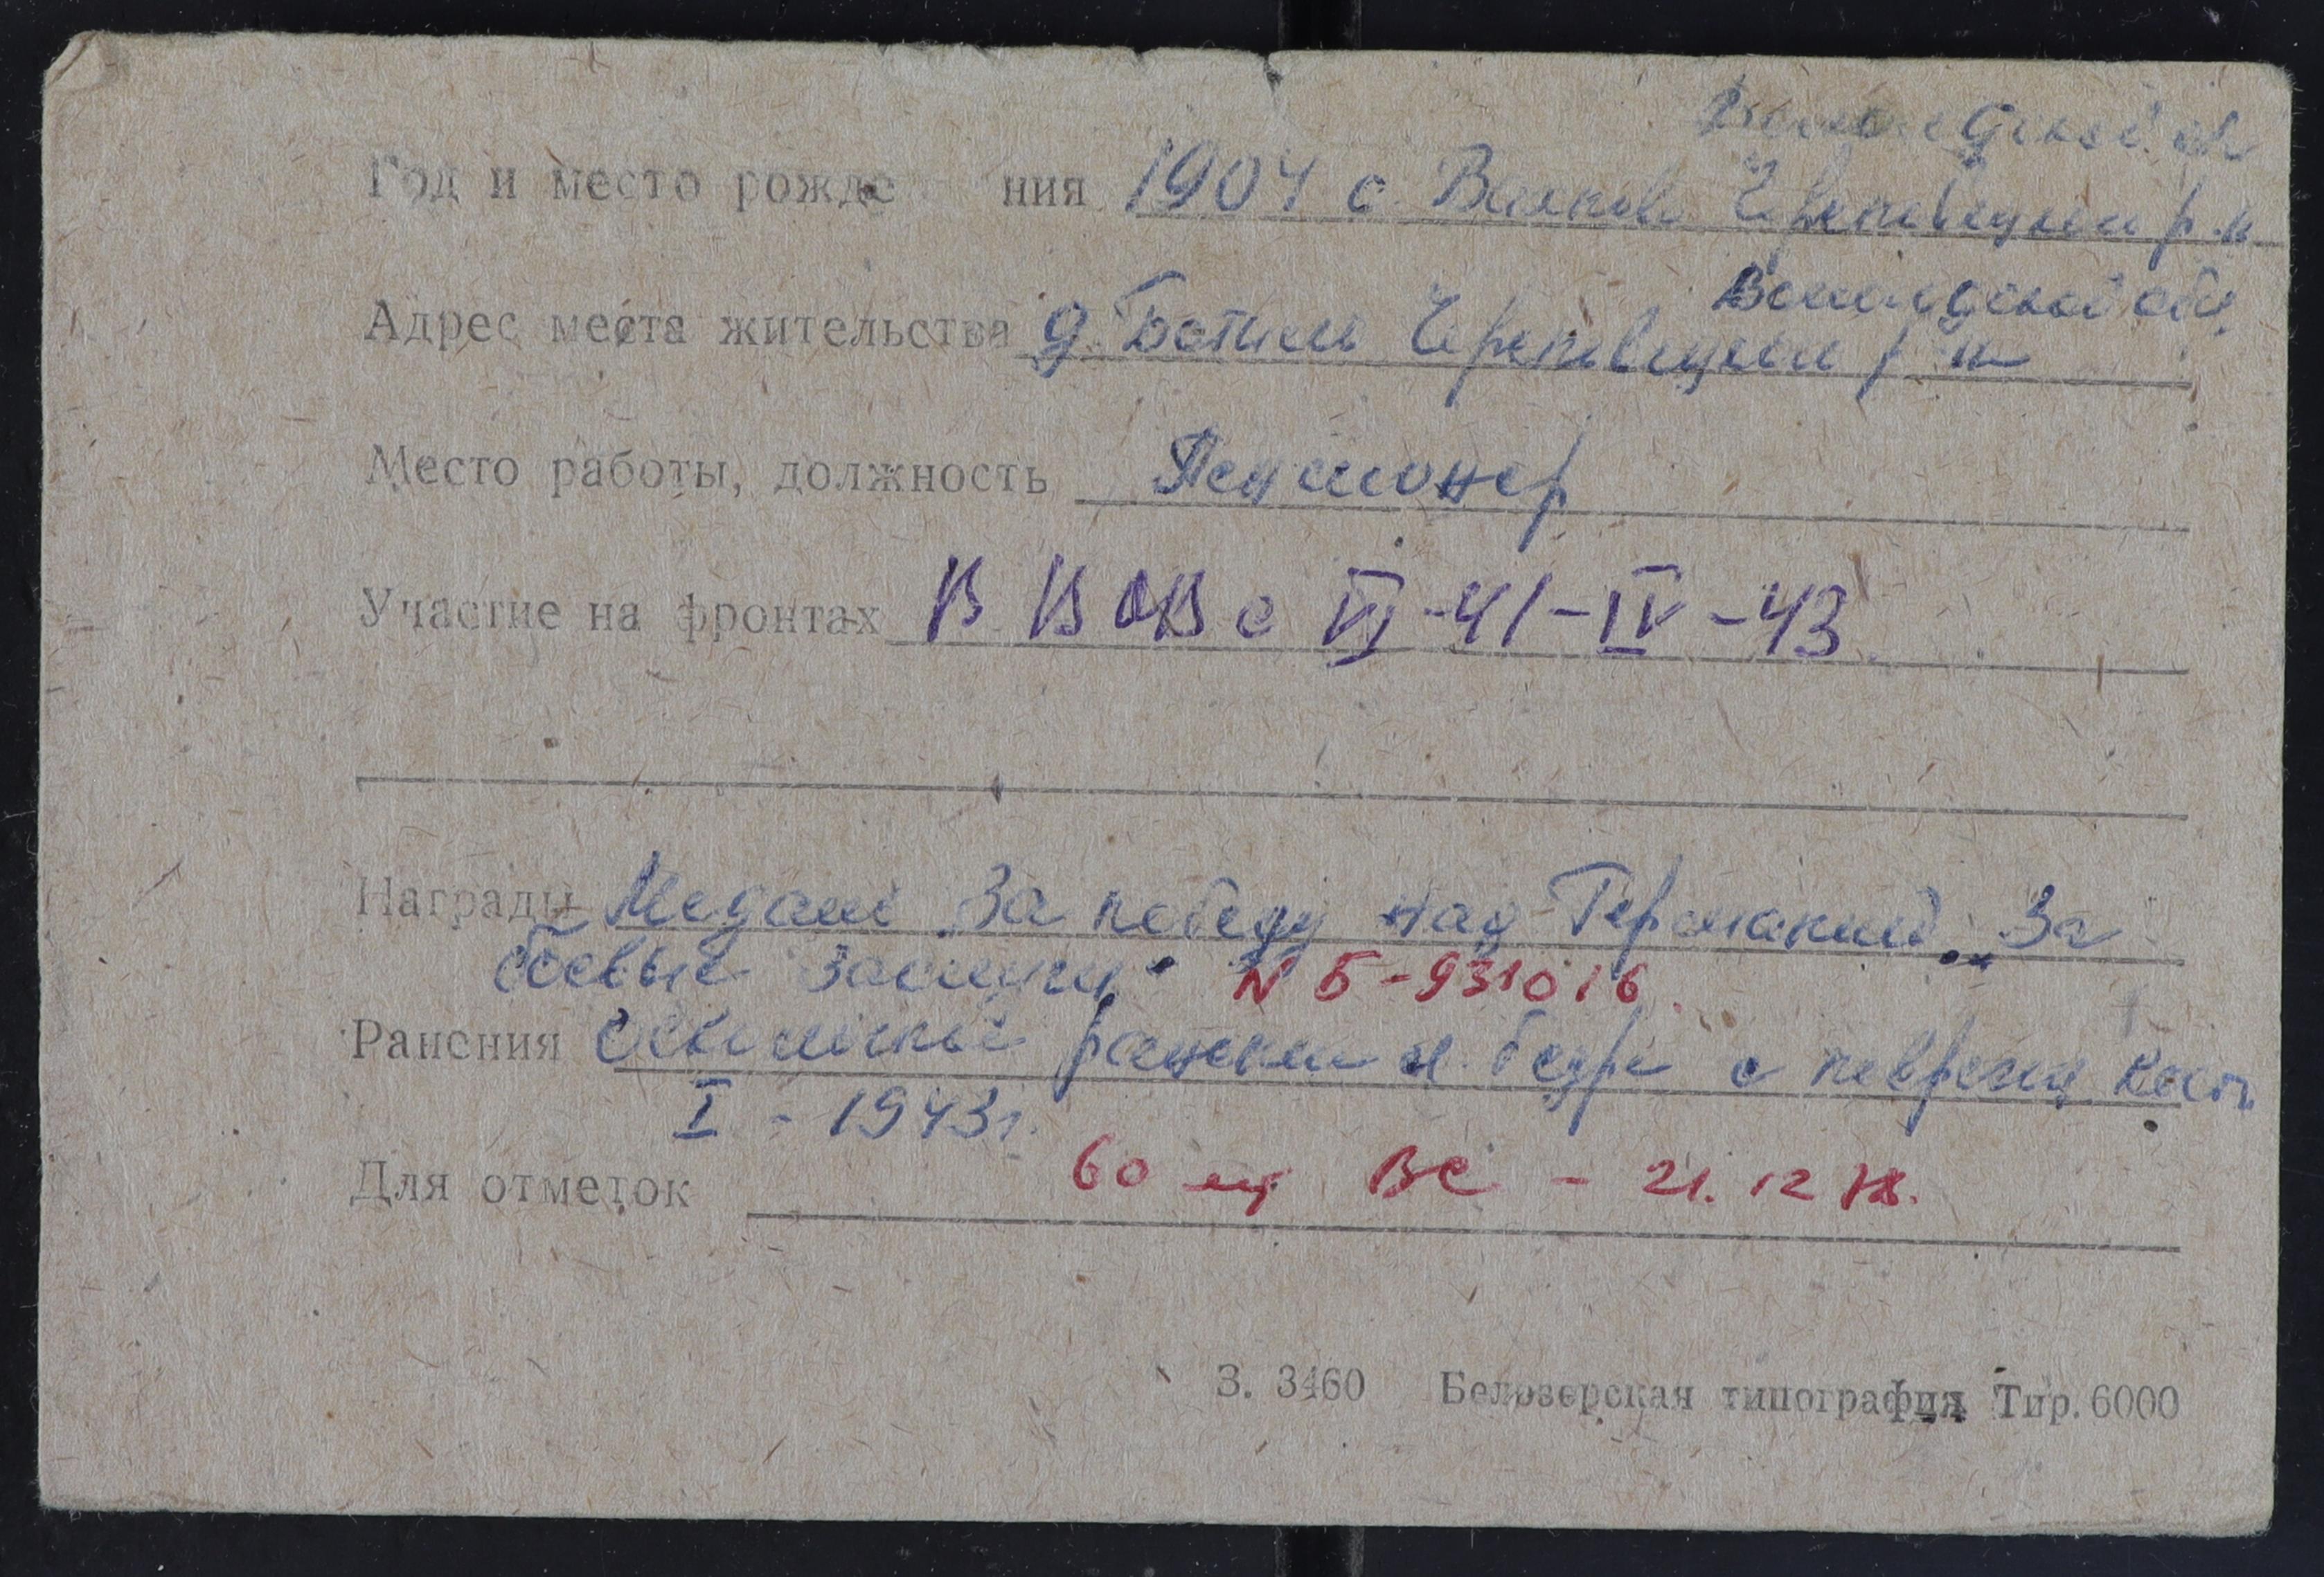 Вологодской об
Год и место рожде ния 1904 с. Череповецкий р.н
Вологодской обл.
Адрес места жительства д. Ботово Череповецкий р-н
Место работы, должность Пенсионер
Участие на фронтах В ВОВ с VI-41-IV-43
Награды Медаль „За победу над Германией", „За
боевые заслуги" N Б-931016
Ранения Осколочное ранение л. бедра с поврежд кост.
I - 1943г.
Для отметок 60 лет ВС - 21.12.78.
З. 3460 Белозерская типография Тир. 6000